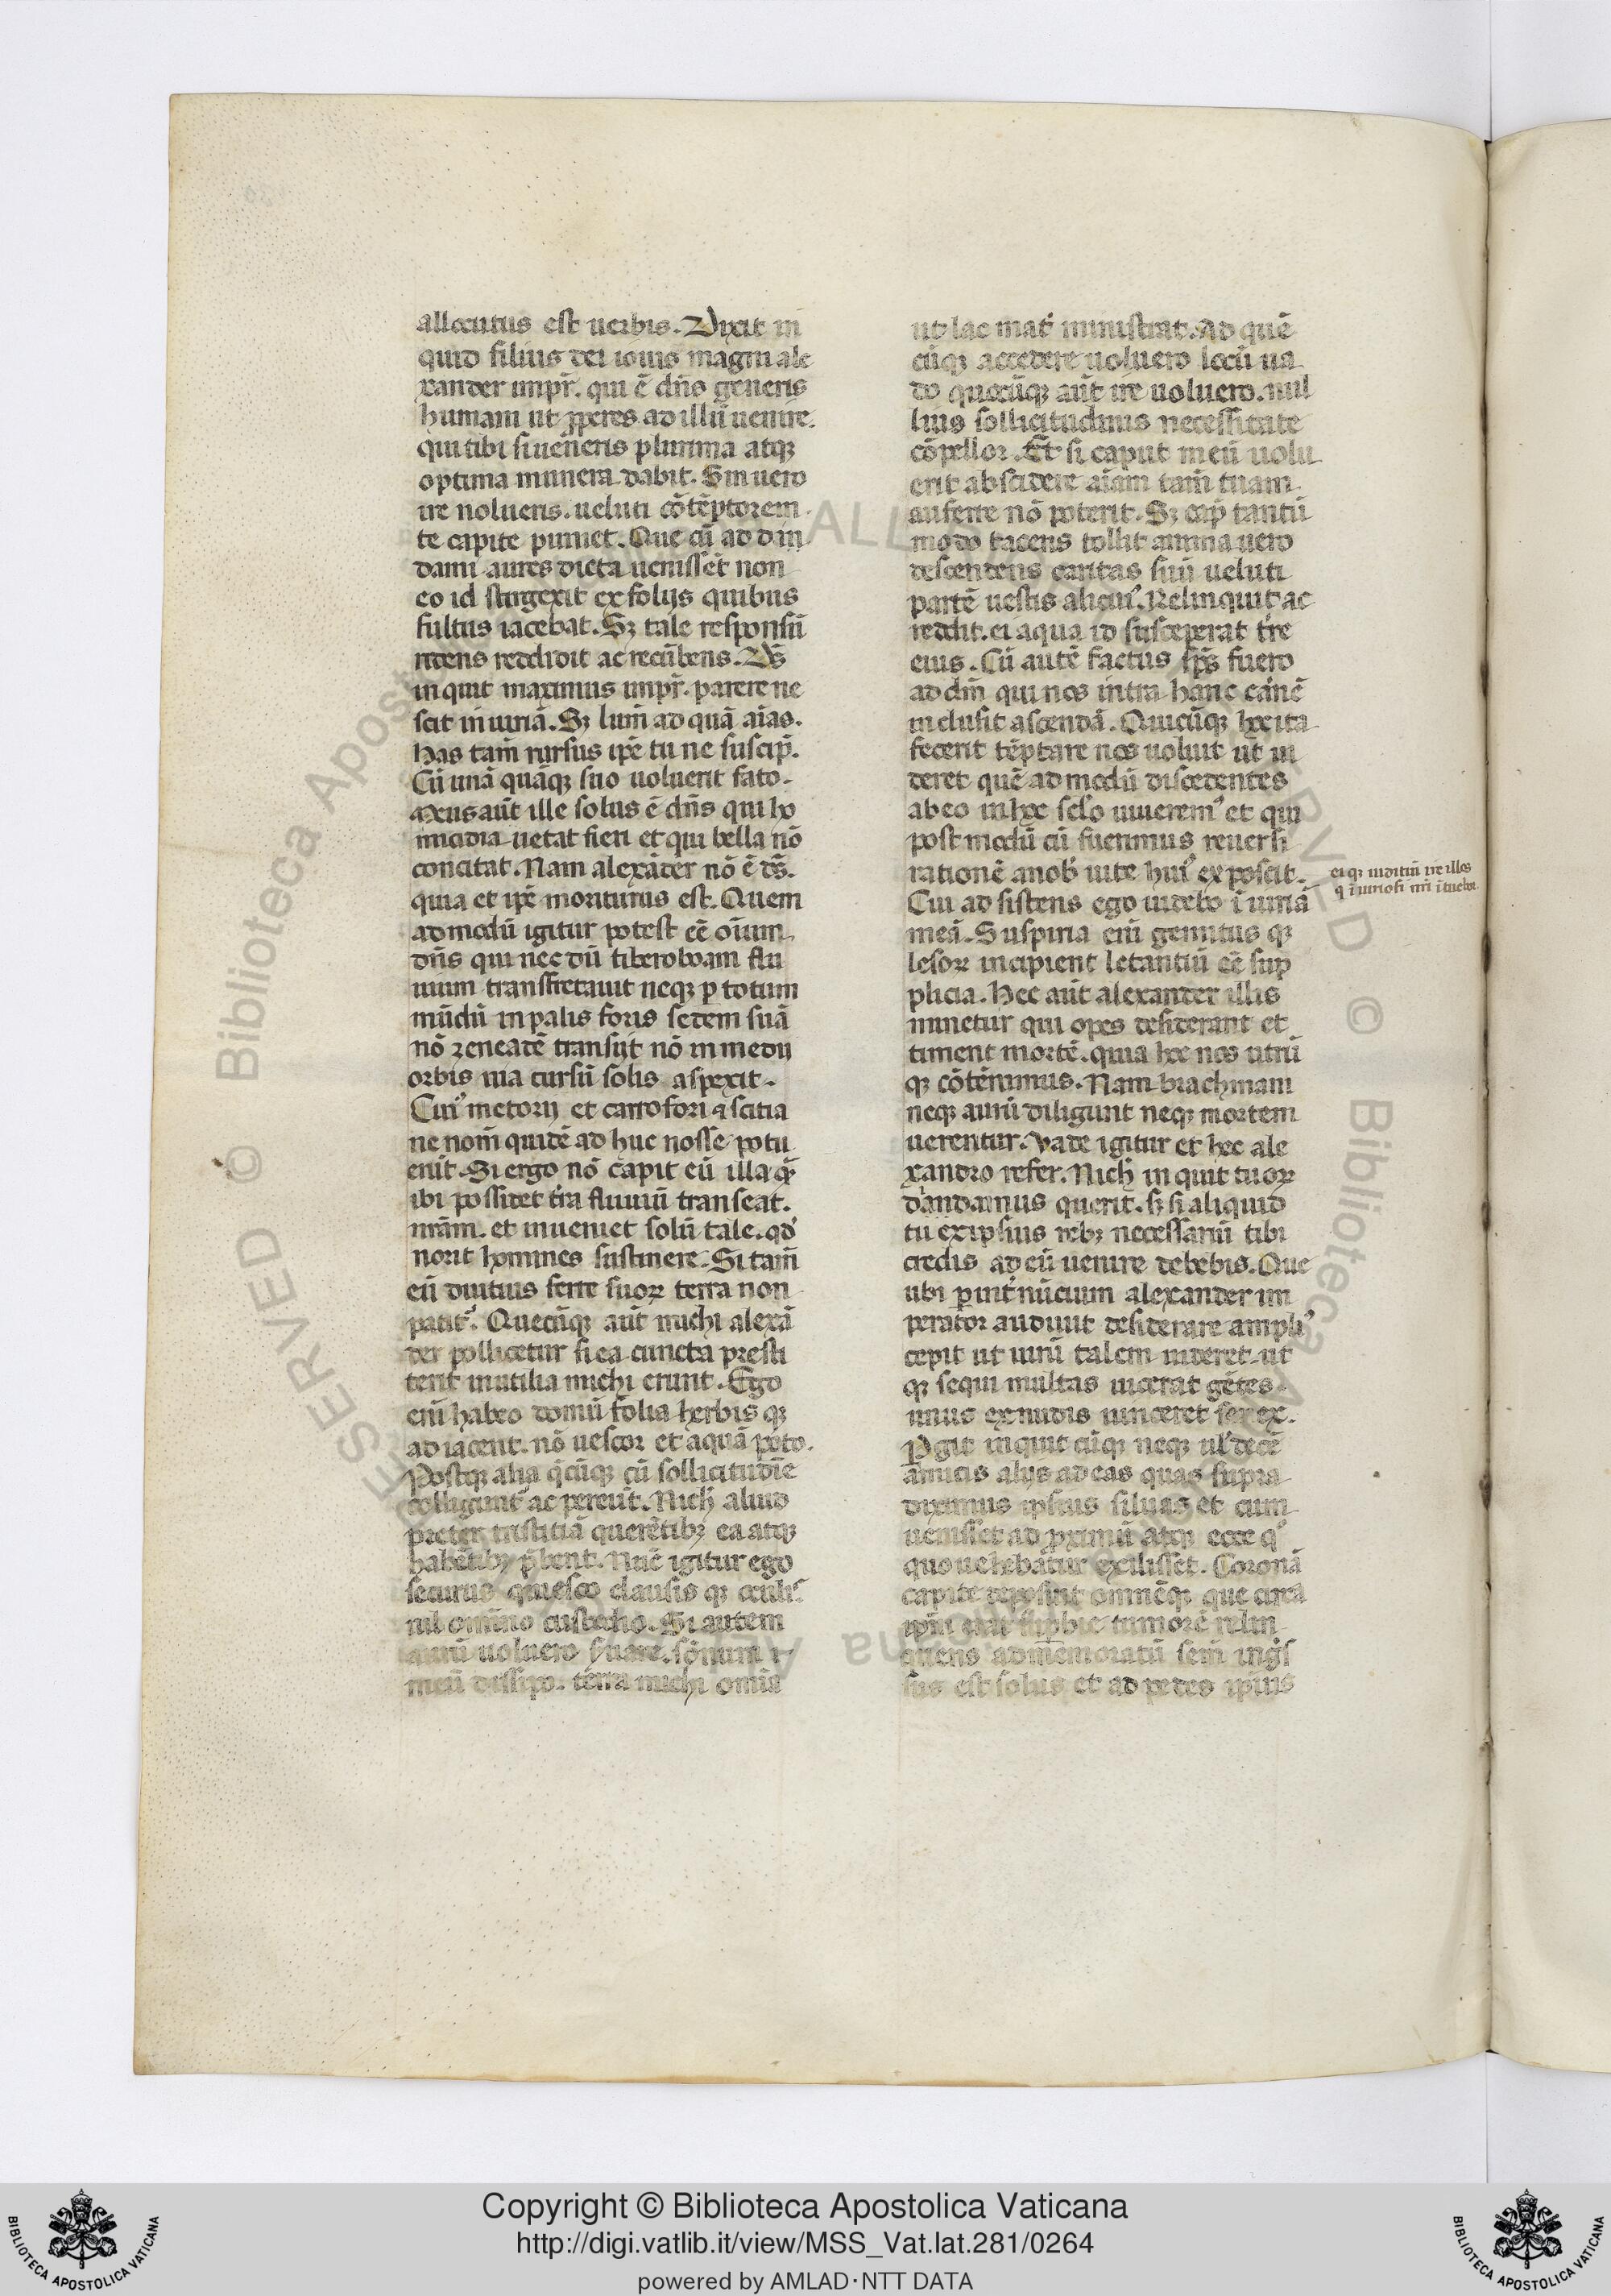 allocutus est uerbis. Dixit in
quid filius dei iouis magni ale
xander impr̄. qui ē dn̄s generis
humani ut ꝓperes ad illū uenire.
qui tibi si ueneris plurima atqꝫ
optima munera dabit. Sin uero
ire nolueris. ueluti cōtēptorem
te capite puniet. Que cū ad din
dami aures dicta uenissēt non
eo id surrexit ex folijs quibus
fultus iacebat. Sꝫ tale responsū
ridens reddidit ac recūbens. Dš
inquit maximus impr̄. parere ne
scit iniuriā. Sꝫ lum̄ ad quā aīas.
has tam̄ rursus ip̄e tu ne suscip̄.
Cū unā quāqꝫ suo uoluerit fato.
Deus aūt ille solus ē dn̄s qui ho
micidia uetat fieri et qui bella nō
concitat. Nam alexāder nō ē dš.
quia et ip̄e moriturus est. Quem
admodū igitur potest eē oīum
dn̄s qui nec dū tiberoboam flu
uium transfretauit neqꝫ ꝑ totum
mūdū in palis foris sedem suā
nō zeneadē transijt nō in medij
orbis uia cursū solis aspexit.
Cuiꝰ metorij et carrofori ⁊ scitia
ne nom̄ quidē ad huc nosse potu
erūt. Si ergo nō capit eū illa q̄
ibi possidet t̄ra fluuiū transeat.
nr̄am. et inueniet solū tale. qd̓
norit homines sustinere. Si tam̄
eū diutius ferre suoꝝ terra non
patitᷣ. Quecūqꝫ aūt michi alexā
der pollicetur si ea cuncta presti
terit inutilia michi erunt. Ego
eni̅ habeo domū folia herbis qꝫ
adiacent. nō uescor et aquā poto.
Postqꝫ alia q̄cūqꝫ cū sollicitudīe
colliguntᷣ ac pereūt. Nich̄ aliud
preter tristitiā querētibꝫ ea atqꝫ
habētibꝫ p̄bent. Nūc igitur ego
securus quiesco clausis qꝫ oculis
nil omīno custodio. Si autem
aurū uoluero s̓uare. sōnum
meū dissipo. terra michi omīa
ut lac mat̓ ministrat. Ad quē
cūqꝫ accedere uoluero locū ua
do quocūqꝫ aūt ire uoluero. nul
lius sollicitudinis necessitate
cōpellor. Et si caput meū uolu
erit abscidere aīam tam̄ tuam
auferre nō poterit. Sꝫ cap̄ tantū
modo tacens tollit anima uero
descendens caritas suū ueluti
partē uestis alicuiꝰ. Relinquit ac
reddit. ei aqua id susceperat t̓re
eius. Cū autē factus sp̄s fuero
ad dn̄m qui nos intra hanc carnē
inclusit ascendā. Quicūqꝫ hoc ita
fecerit tēptare nos uoluit ut ui
deret quē ad modū discedentes
ab eo in hoc sc̄lo uiueremꝰ et qui
post modū cū fuerimus reuersi
rationē a nob̓ uite huiꝰ exposcit.
Cui adsistens ego uidebo īiuriā
meā. Suspiria eni̅ gemitus qꝫ
lesoꝝ incipient letantiū eē sup
plicia. Hec aūt alexander illis
minetur qui opes desiderant et
timent mortē. quia hoc nos utrū
qꝫ cōtēnimus. Nam brachmani
neqꝫ aurū diligunt neqꝫ mortem
uerentur. Vade igitur et hoc ale
xandro refer. Nich̄ inquit tuoꝝ
dandamus querit. sꝫ si aliquid
tu ex ipsius rebꝫ necessariū tibi
credis ad eū uenire debebis. Que
ubi ꝑ int̓nūcium alexander im
perator audiuit desiderare ampliꝰ
cepit ut uirū talem uideret ut
qꝫ sequi multas uicerat gētes
unus ex nudis uinceret senex.
Pgit inquit cūqꝫ neqꝫ ul̓ decē
amicis alijs ad eas quas supra
diximus ipsius siluas et cum
uenisset ad ꝓximū atqꝫ ecce qͦ
quo uehebatur exilisset. Coronā
capite deposuit omnēqꝫ que circa
ip̄m erat suꝑbie tumorē relin
quens ad memoratū sem̄ ing̓s
sus est solus et ad pedes ipsius